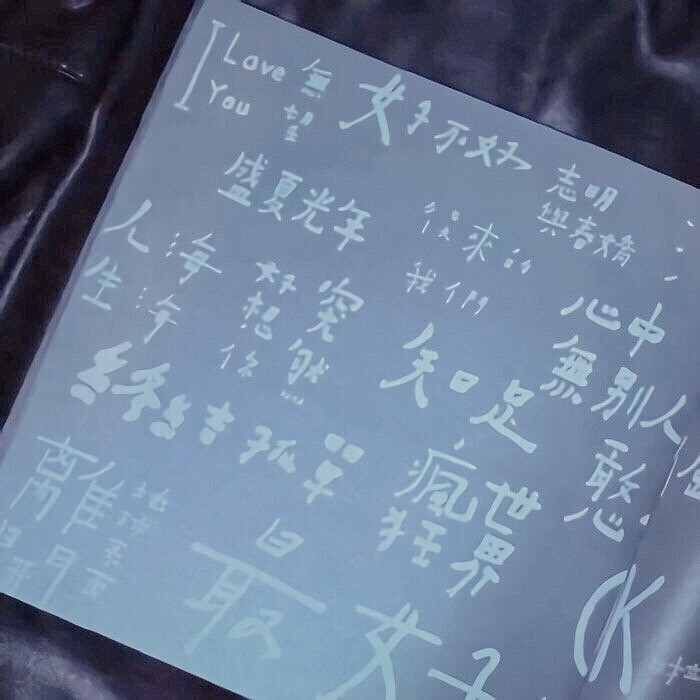 I Love You
無望
好不好
志明與春嬌
盛夏光年
後來的我們
人生海海
好想你
突然
心中無別人
知足
終結孤單
憨
瘋狂世界
離開地球表面
最
好